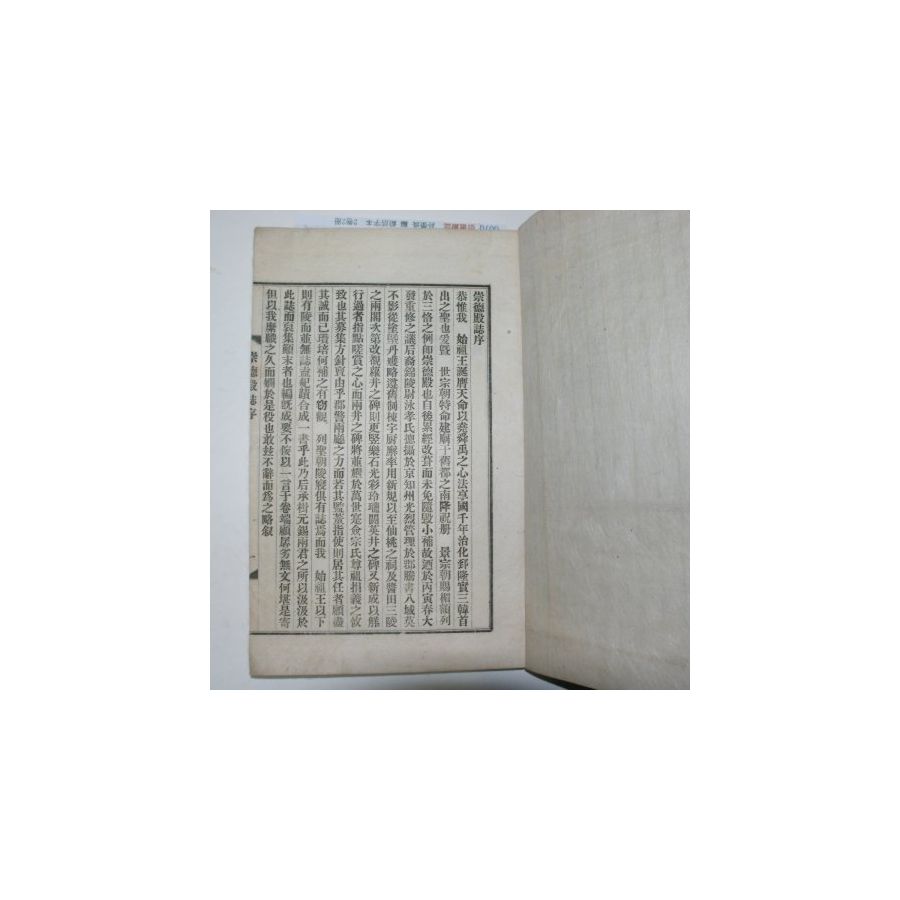 崇德殿誌序
恭惟我 始祖王誕膺天命以堯舜禹之心法享國千年治化郅隆實三韓首
出之聖也爰曁 世宗朝特命建廟于舊都之南降祝册 景宗朝賜楣額列
於三恪之例即崇德殿也自後累經改葺而未免隨毀小補故迺於丙寅春大
發重修之議后裔錦陵尉泳孝氏摠攝於京知州光烈管理於郡騰書八域莫
不影從塗墍丹雘略遵舊制棟宇厨廨率用新規以至仙桃之祠及醬田三陵
之兩閣次第改觀羅井之碑則更竪樂石光彩玲瓏閼英井之碑又新成以觧
行過者指點嗟賞之心而兩井之碑將並耀於萬世寔僉宗氏尊祖捐義之攸
致也其募集方針亶由乎郡警兩廳之力而若其監董指使則居其任者顧盡
其誠而已瓌琦何補之有竊覵 列聖朝陵寢俱有誌焉而我 始祖王以下
則有陵而並無誌盍紀蹟合成一書乎此乃后承樹元錫兩君之所以汲汲於
此誌而裒集顚末者也編旣成要不佞以一言于卷端顧孱劣無文何堪是寄
但以我縻職之久而嫺於是役也敢玆不辭而爲之略叙
崇德殿誌序
一